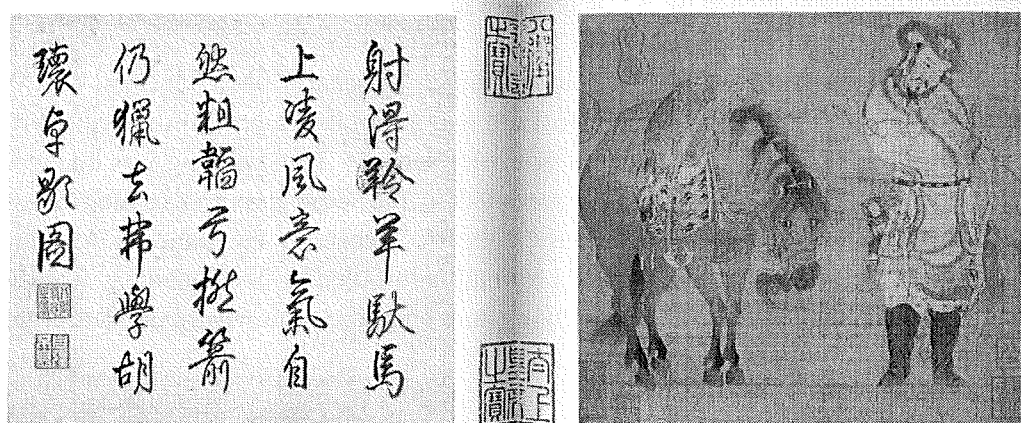 射得羚羊馱馬
上凌風意氣自
然粗韜弓撚箭
仍獵去弗學胡
瓌卓歇圖